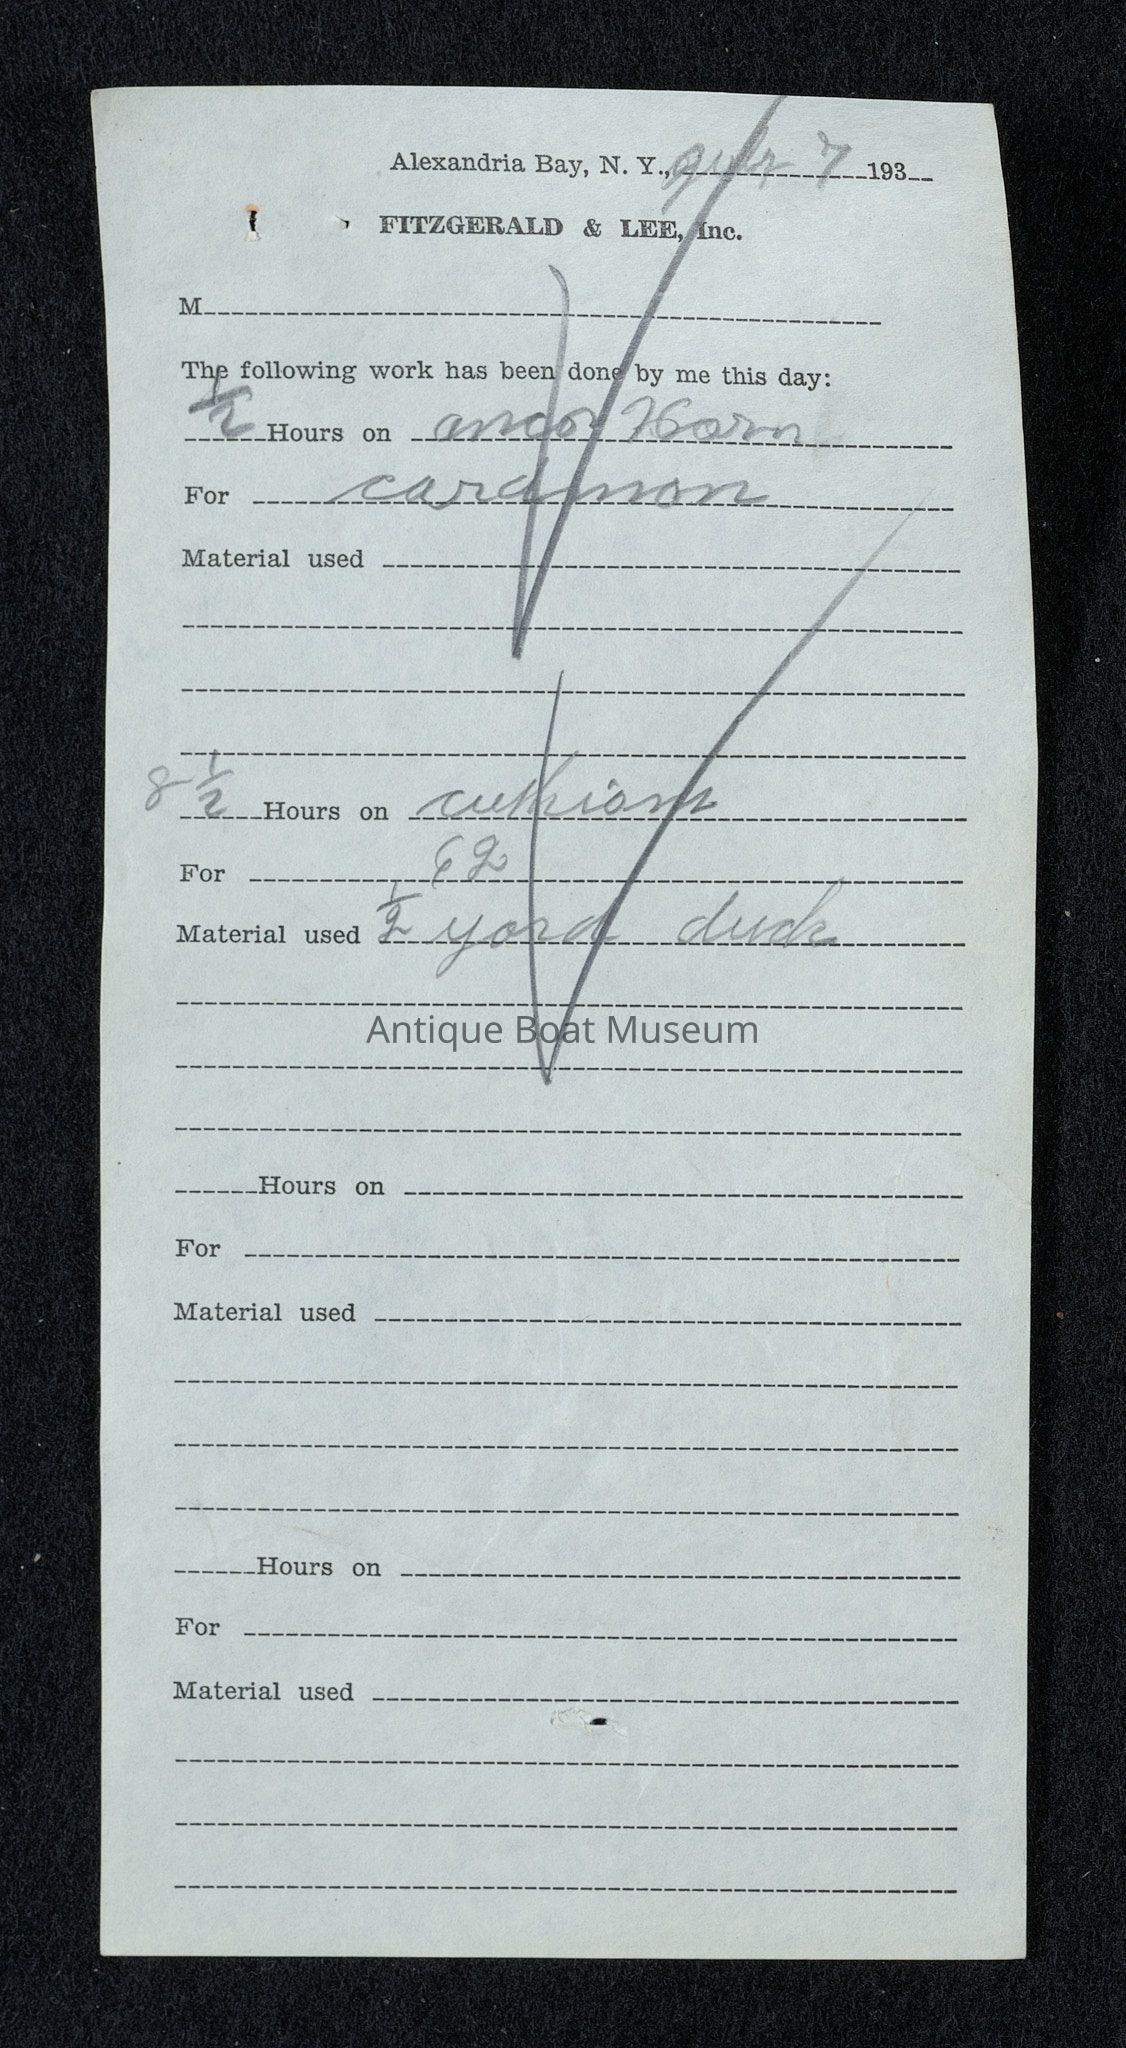 Alexandria Bay, N. Y., 7 193
FITZGERALD & LEE, Inc.
M
The following work has been done by me this day:
1/2 Hours on ancor Horn
For cardmon
Material used
8 1/2 Hours on cuthions
For 62
Material used 1/2 yard duck
Antique Boat Museum
Hours on
For
Material used
Hours on
For
Material used